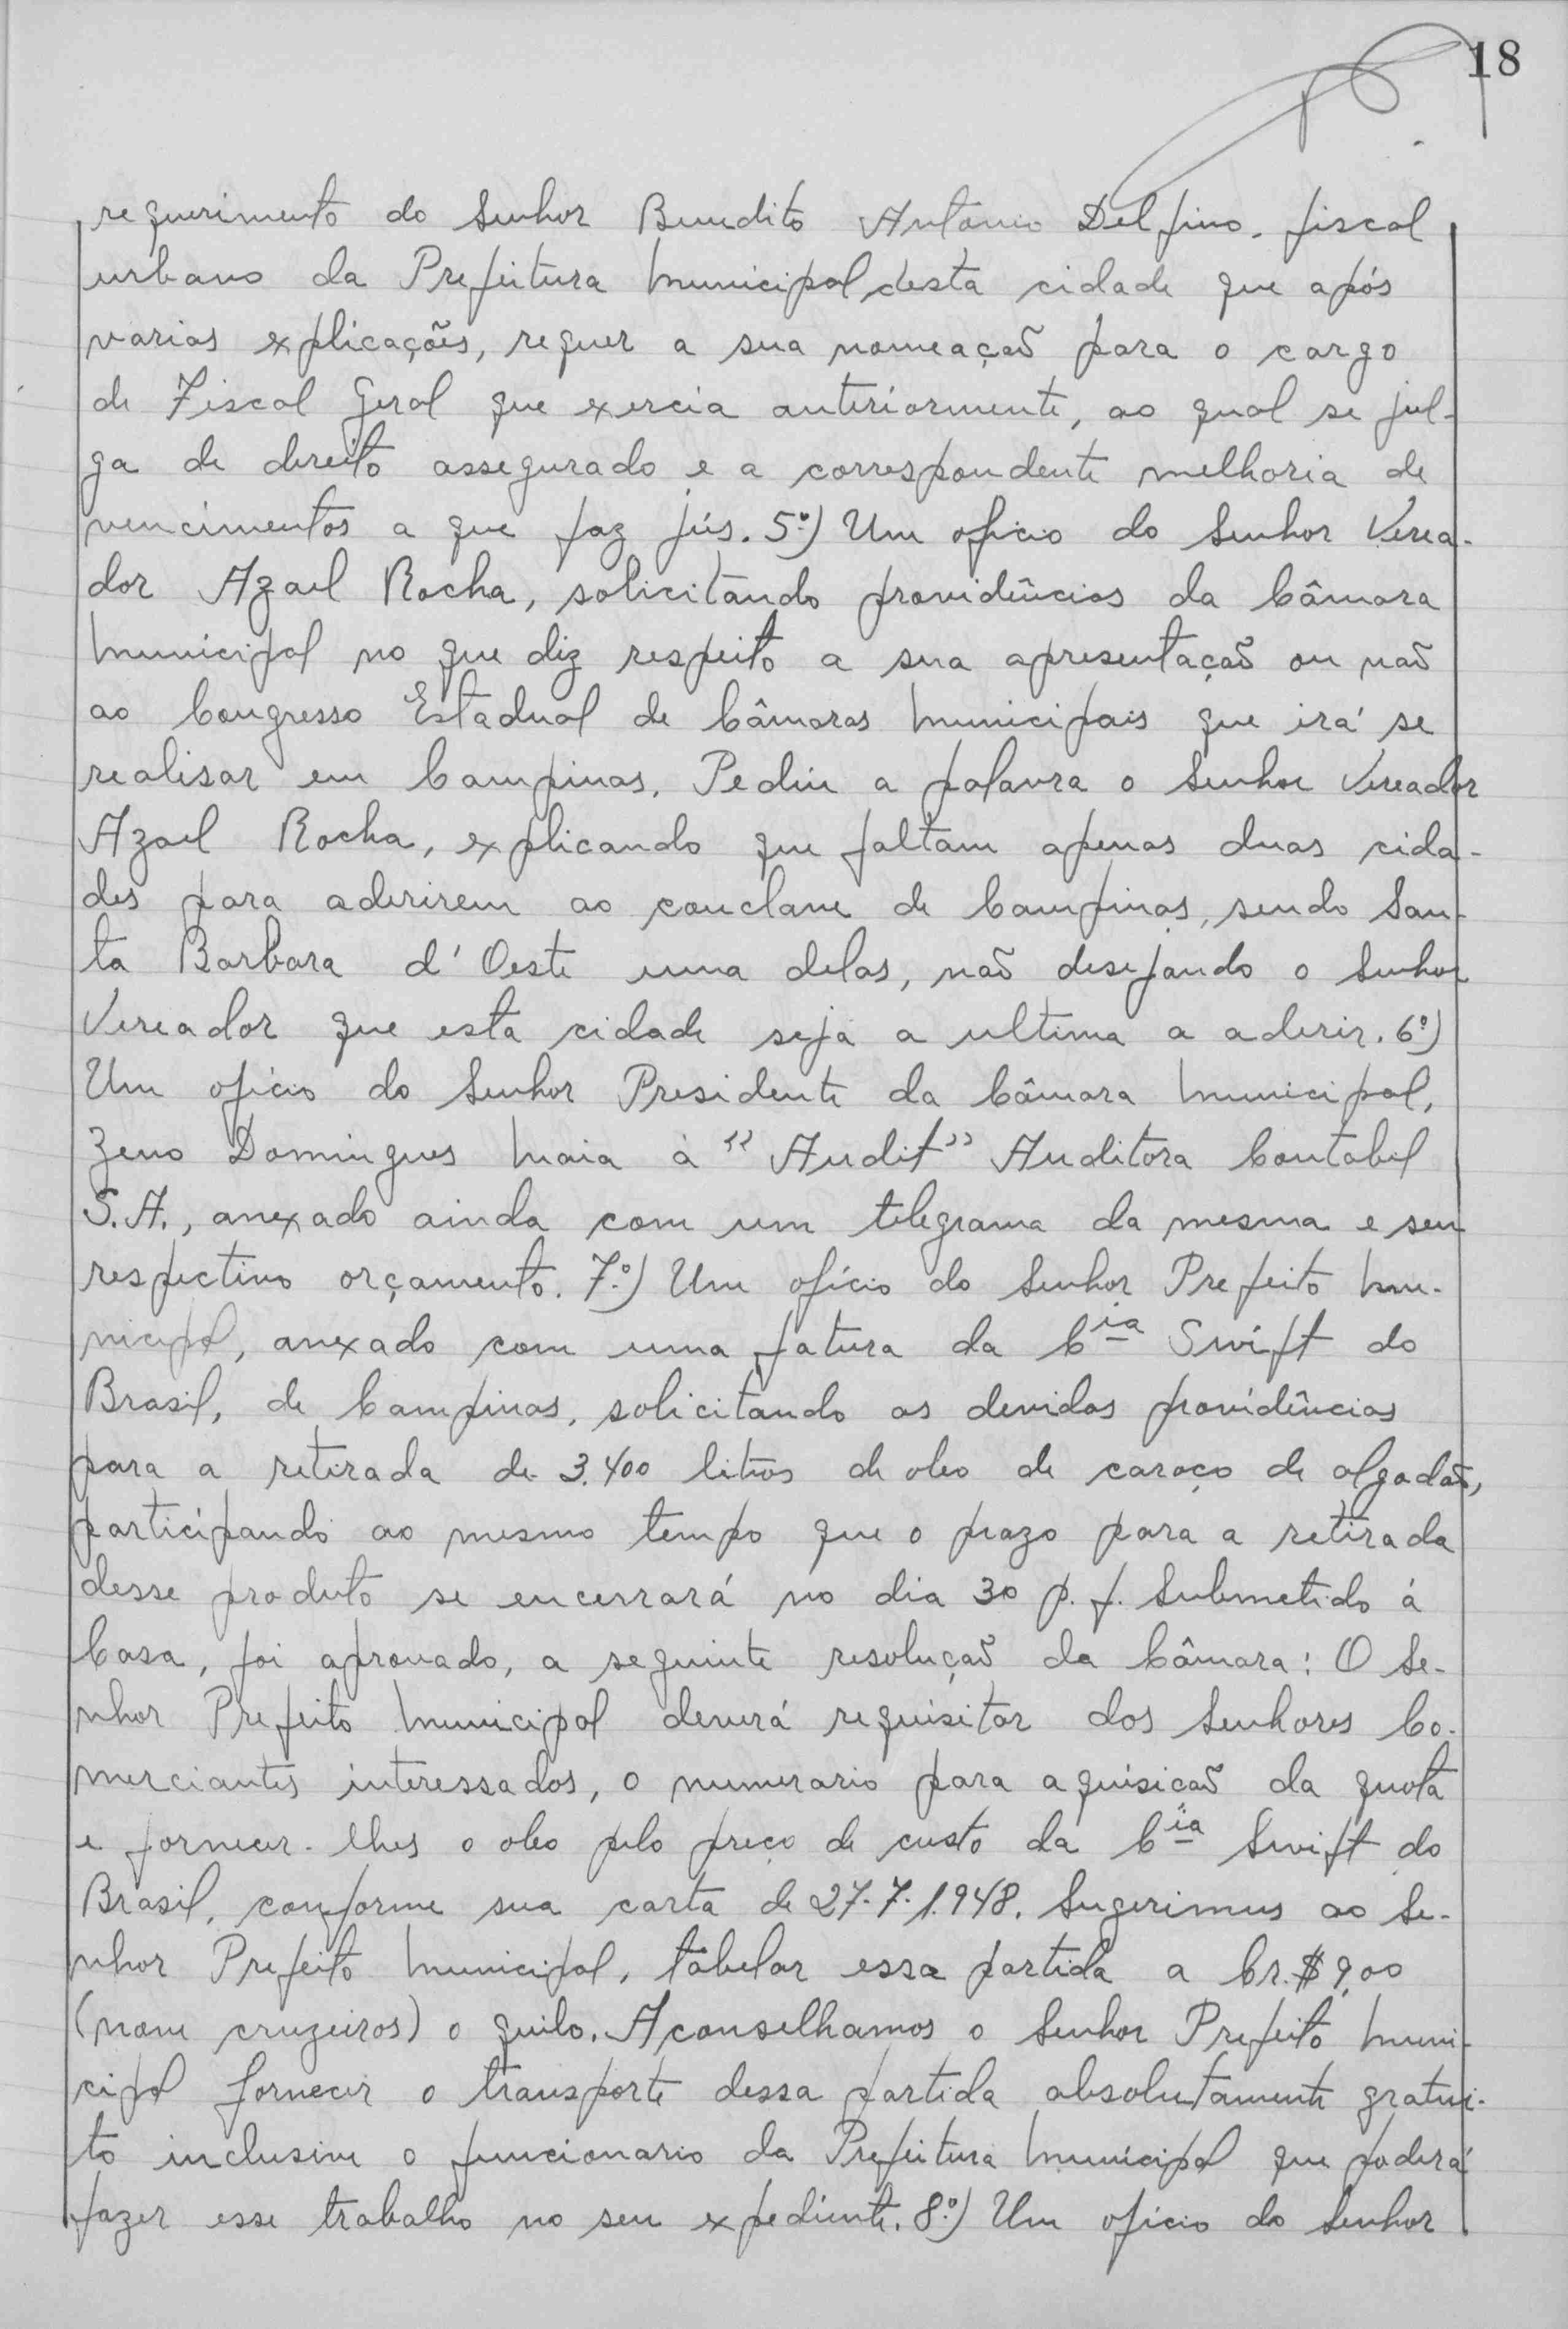 18
requerimento do Senhor Benedito Antonio Delfino, fiscal
urbano da Prefeitura Municipal desta cidade que após
varias explicações, requer a sua nomeação para o cargo
de Fiscal Geral que exercia anteriormente, ao qual se jul-
ga de direito assegurado e a correspondente melhoria de
vencimentos a que faz jús. 5º) Um oficio do Senhor Verea-
dor Azael Rocha, solicitando providências da Câmara
Municipal no que diz respeito a sua apresentação ou não
ao Congresso Estadual de Câmaras Municipais que irá se
realisar em Campinas. Pediu a palavra o Senhor Vereador
Azael Rocha, explicando que faltam apenas duas cida-
des para aderirem ao conclave de Campinas, sendo San-
ta Barbara d'Oeste uma delas, não desejando o Senhor
Vereador que esta cidade seja a ultima a aderir. 6º)
Um oficio do Senhor Presidente da Câmara Municipal,
Zeno Domingues Maia à "Audit" Auditora Contabel
S.A., anexado ainda com um telegrama da mesma e seu
respectivo orçamento. 7º) Um ofício do Senhor Prefeito Mu-
nicipal, anexado com uma fatura da Cia Swift do
Brasil, de Campinas, solicitando as devidas providências
para a retirada de 3.400 litros de oleo de caroço de algodão,
participando ao mesmo tempo que o prazo para a retirada
desse produto se encerrará no dia 30 p.f. Submetido á
Casa, foi aprovado, a seguinte resolução da Câmara: O Se-
nhor Prefeito Municipal deverá requisitar dos Senhores Co-
merciantes interessados, o numerario para aquisicão da quota
e fornecer-lhes o oleo pelo preço de custo da Cia Swift do
Brasil, conforme sua carta de 27-7-1.948. Sugerimus ao Se-
nhor Prefeito Municipal, tabelar essa partida a Cr.$ 9,00
(nove cruzeiros) o quilo. Aconselhamos o Senhor Prefeito Muni-
cipal fornecer o transporte dessa partida absolutamente gratui-
to inclusive o funcionario da Prefeitura Municipal que poderá
fazer esse trabalho no seu expediente. 8º) Um oficio do Senhor